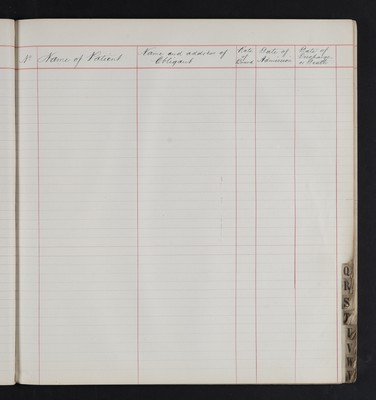 No Name of Patient
Name and address of
Obligant
Date
of
Bond
Date of
Admission
Date of
Discharge
or Death
Q
R
S
T
U
V
W